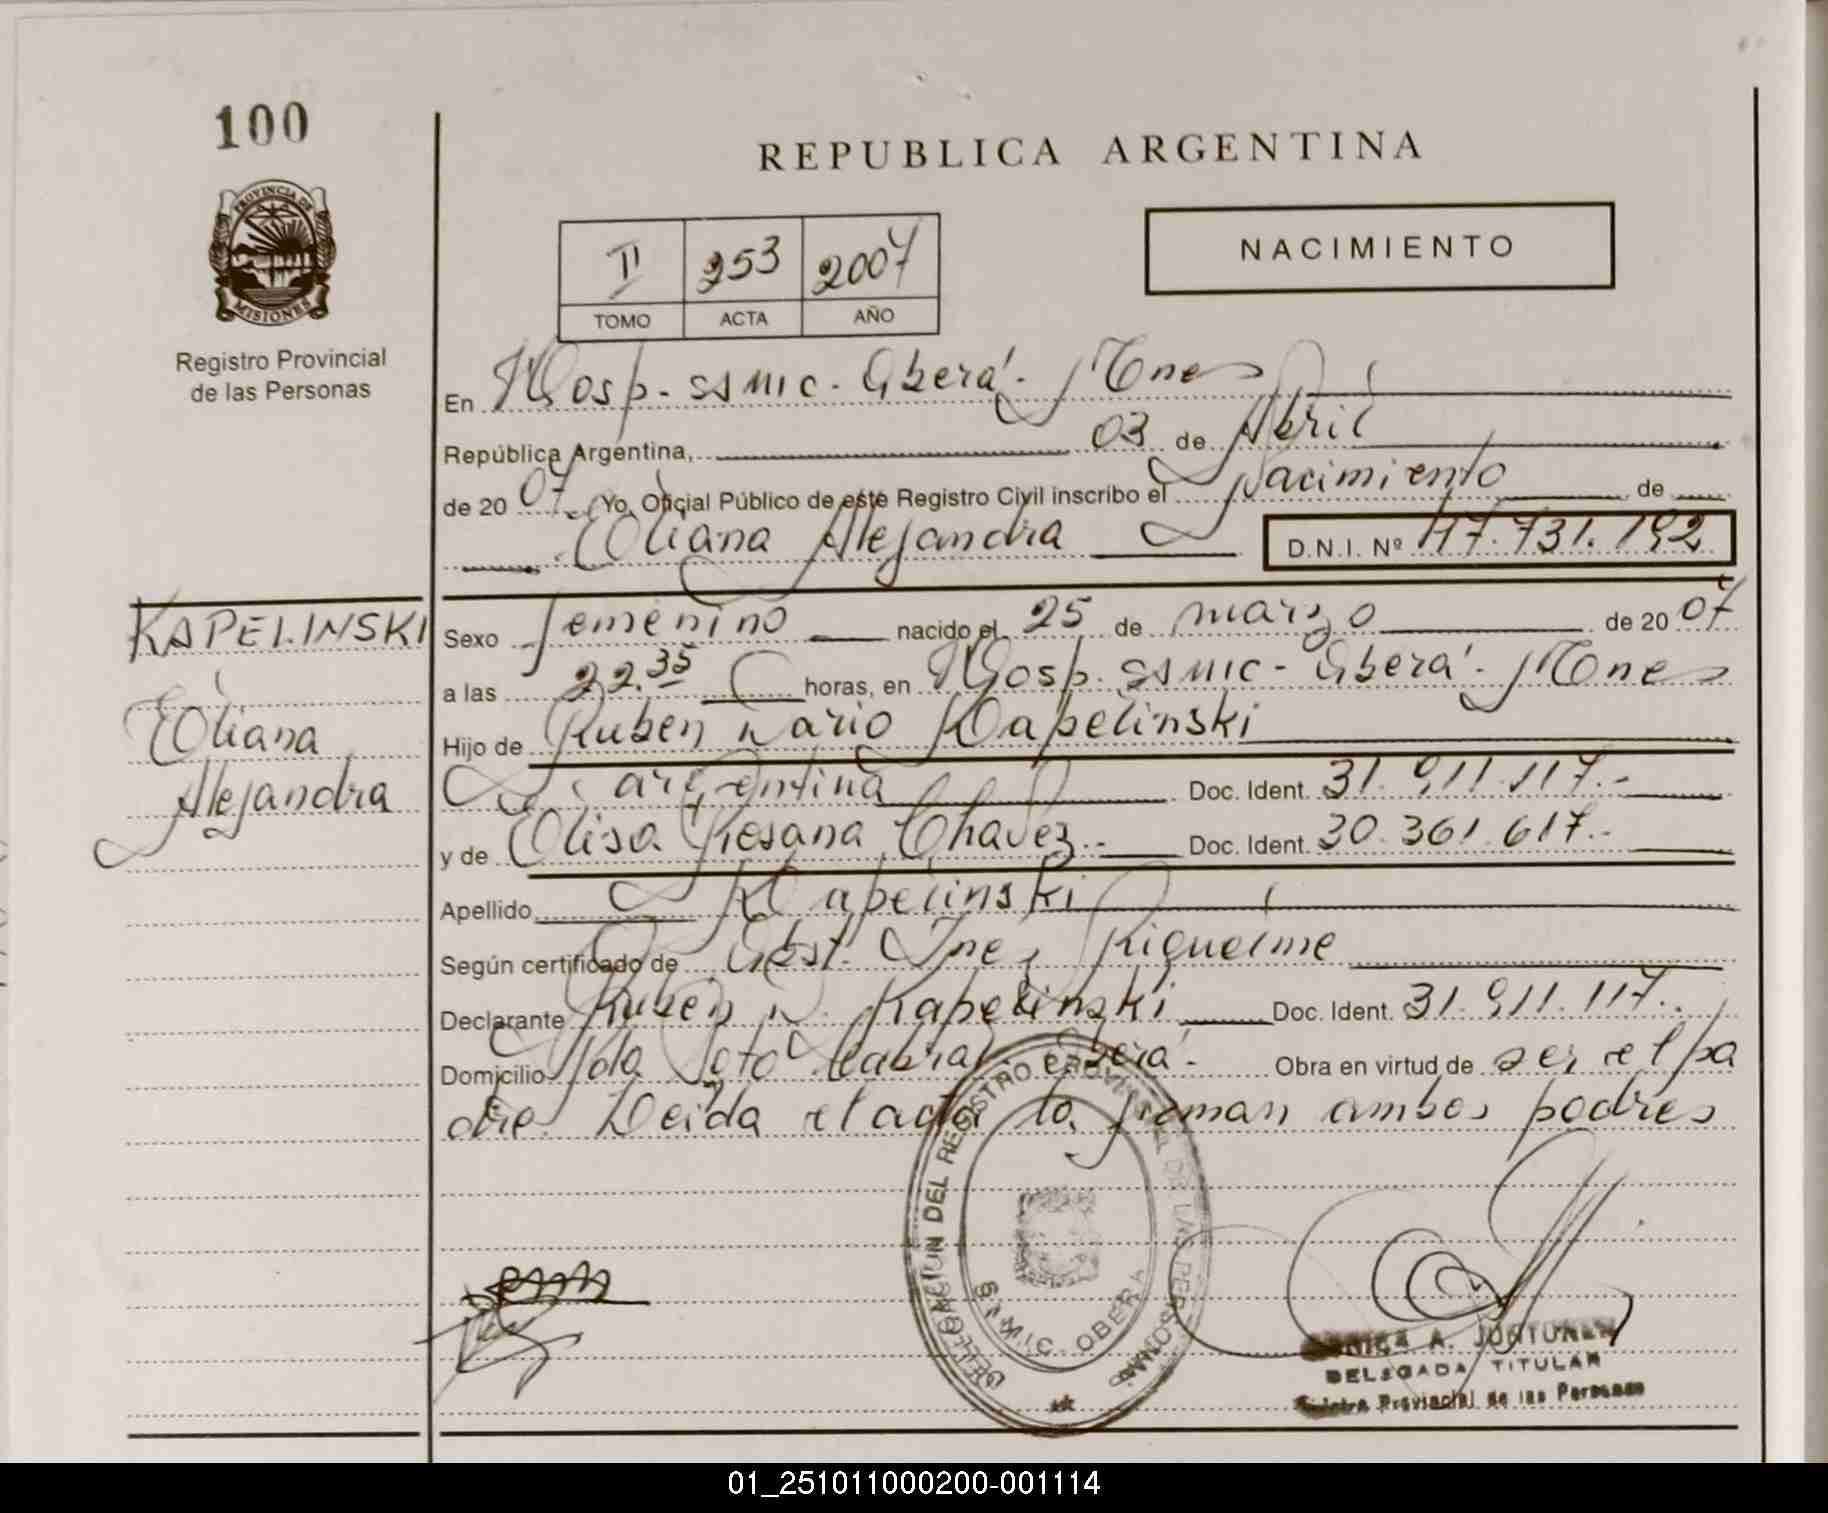 100
REPUBLICA ARGENTINA
PROVINCIA DE
MISIONES
Registro Provincial
de las Personas
II 253 2007
TOMO ACTA AÑO
NACIMIENTO
En Hosp. SAMIC. Oberá. Mnes
República Argentina, 03 de Abril
de 2007. Yo, Oficial Público de este Registro Civil inscribo el Nacimiento de
Eliana Alejandra D.N.I. Nº 47.731.192
KAPELINSKI
Eliana
Alejandra
Sexo femenino nacido el 25 de marzo de 2007
a las 22.35 horas, en Hosp. SAMIC - Oberá. Mnes
Hijo de Ruben Dario Kapelinski
argentina Doc. Ident. 31.911.117.-
y de Elisa Rosana Chavez.- Doc. Ident. 30.361.617.-
Apellido Kapelinski
Según certificado de Obst. Ines Riquelme
Declarante Ruben D. Kapelinski Doc. Ident. 31.911.117.
Domicilio Soto Cabral Oberá. Obra en virtud de ser el pa
dre. Leida el acta la firman ambos padres
DELEGACION DEL REGISTRO PROVINCIAL DE LAS PERSONAS
S.A.M.I.C. OBERA
A. JUNTUNEN
DELEGADA TITULAR
Registro Provincial de las Personas
01_251011000200-001114